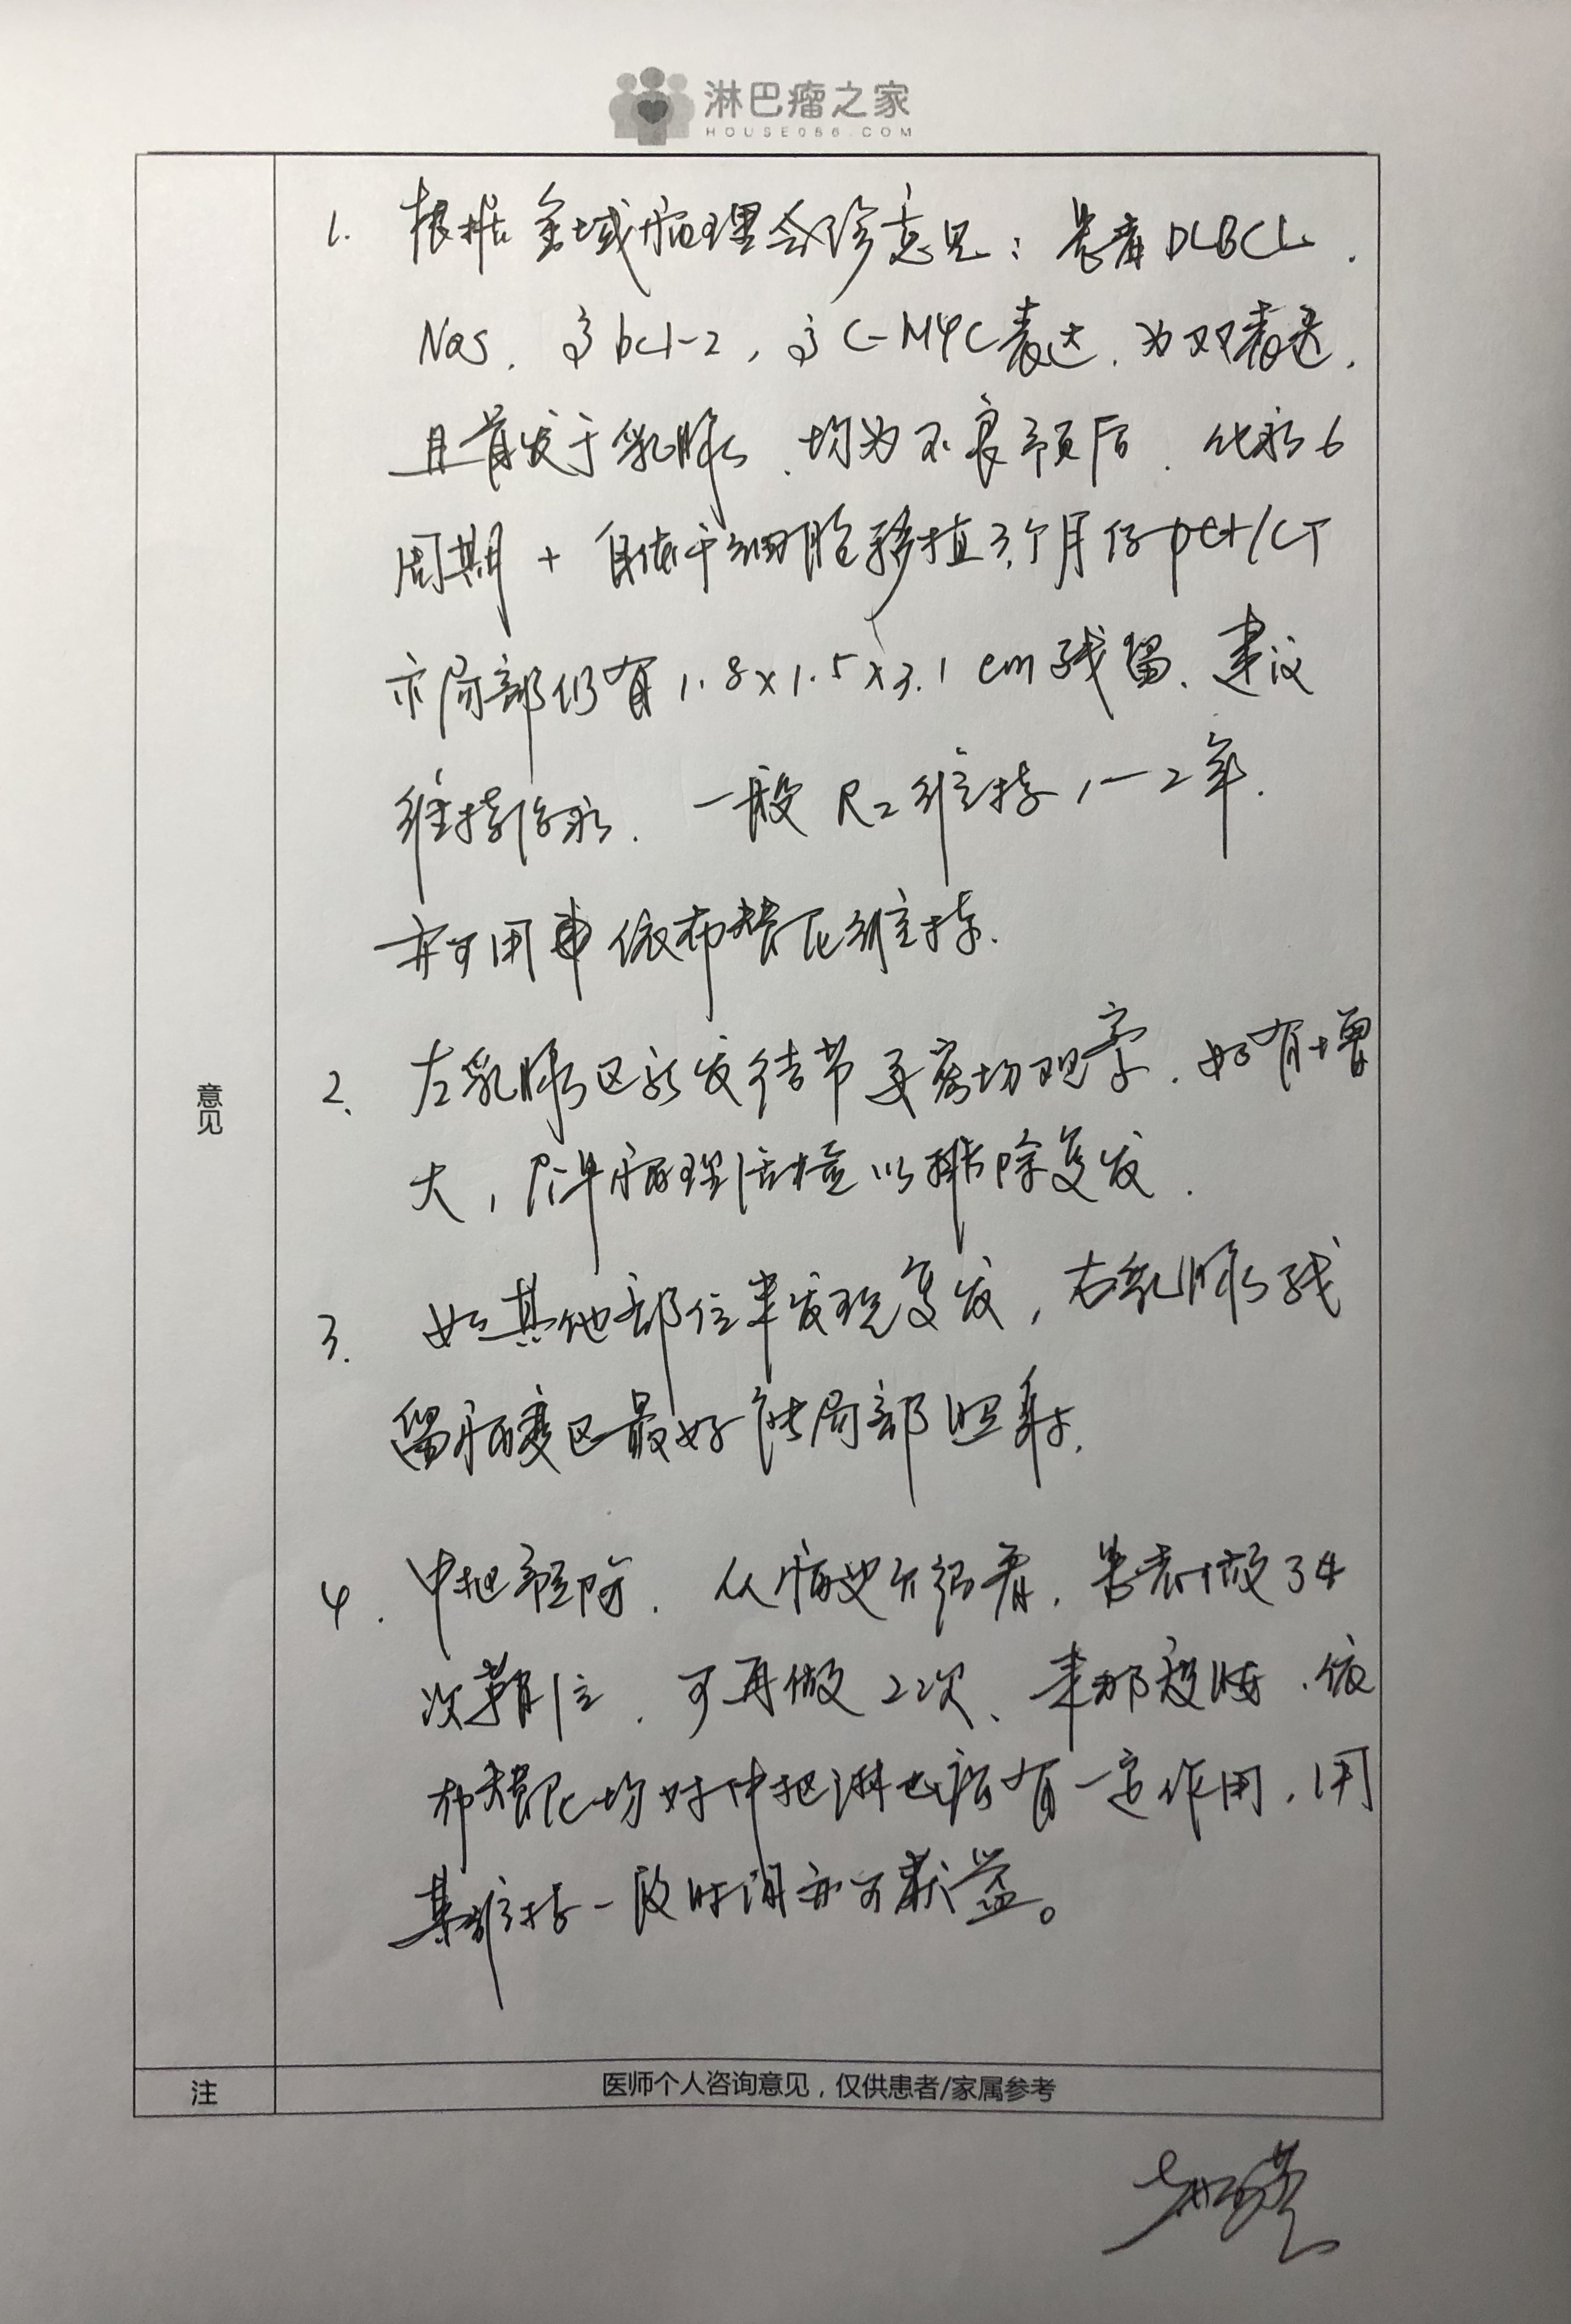 淋巴瘤之家
HOUSE086.COM
意见
1. 根据金域病理会诊意见：患者DLBCL.
Nos. 高bcl-2，高C-MYC表达. 为双表达.
且首发于乳腺、均为不良预后. 化疗6
周期 + 自体干细胞移植3个月后pet/CT
示局部仍有1.8x1.5x3.1cm残留、建议
维持治疗. 一般R2维持1-2年.
亦可用 依布替尼维持.
2. 左乳腺区新发结节要密切观察. 如有增
大，尽早病理活检以排除复发.
3. 如其他部位未发现复发，右乳腺残
留病变区最好能局部照射.
4. 中枢预防. 从病史介绍看，患者做了4
次鞘注. 可再做2次、来那度胺、依
布替尼均对中枢淋巴瘤有一定作用，用
其维持一段时间亦可获益。
注
医师个人咨询意见，仅供患者/家属参考